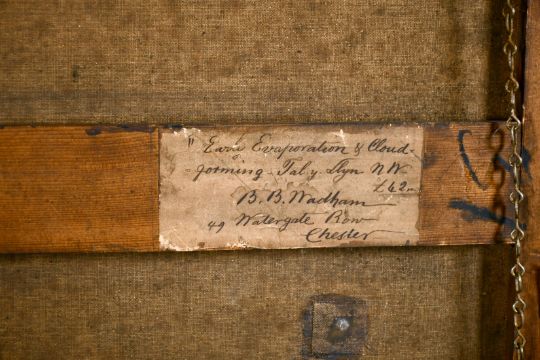 " Early Evaporation & Cloud-
-forming - Tal-y-Llyn N W.
£42.-
B. B. Wadham
49 Watergate Row
Chester